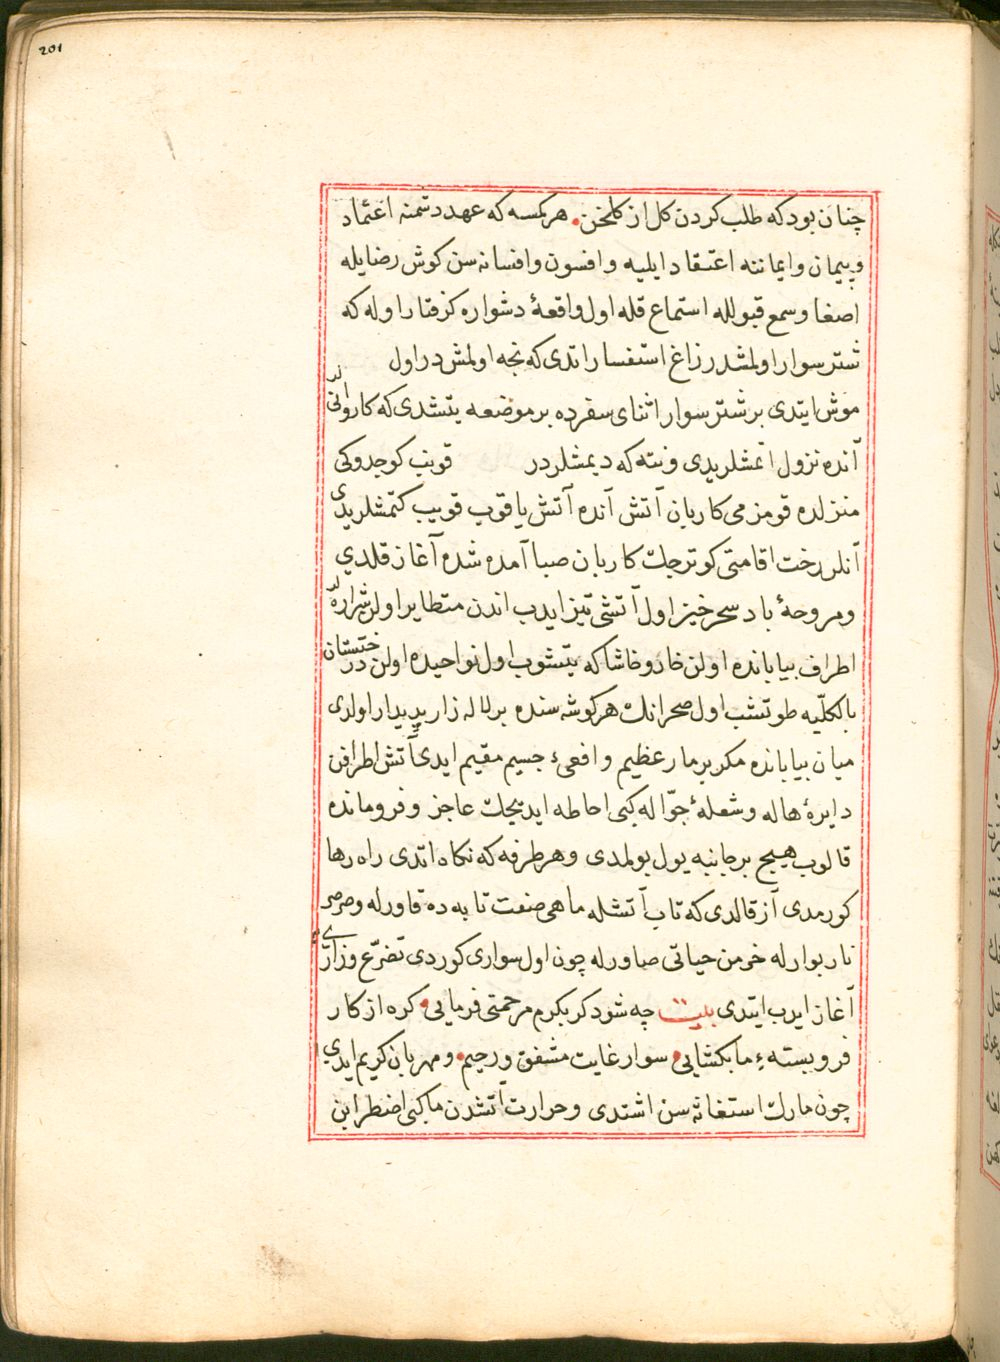 201
چنان بود که طلب کردن کل از کلخن هر کمسه که عهد دشمنه اعتماد
و پیمان و ایماننه اعتقاد ایلیه و افسون و افسانه سن کوش رضایله
اصغا و سمع قبولله استماع قله اول واقعهٔ دشواره کرفتار اوله که
شتر سوار اولمشدر زاغ استفسار اتدی که نجه اولمش در اول
موش ایتدی بر شتر سوار اثنای سفرده بر موضعه یتشدی که کاروانیلر
آنده نزول اتمشلریدی و نیته که دیمشلر در قونب کوجدوکی
منزلده قومز می کاربان آتش آنده آتش یاقوب قویب کتمشلریدی
آنلر رخت اقامتی کوترجك کاربان صبا آمده شده آغاز قلدی
و مروحهٔ باد سحر خیز اول آتشی تیز ایدب اندن متطایر اولن شراره لر
اطراف بیابانده اولن خار و خاشاکه یتشوب اول نواحیده اولن درختستان
بالکلّیه طوتشب اول صحرانك هر کوشه سنده بر لاله زار پدیدار اولدی
میان بیابانده مکر بر مار عظیم و افعیء جسیم مقیم ایدی آتش اطرافن
دایرهٔ هاله و شعلهٔ جوّاله کبی احاطه ایدیجك عاجز و فرومانده
قالوب هیچ بر جانبه یول بولمدی و هر طرفه که نکاه اتدی راه رها
کورمدی آز قالدی که تاب آتشله ماهی صنعت تابه ده قاورله و صرصر
نار بوارله خرمن حیاتی صاورله چون اول سواری کوردی تضرّع و زاری
آغاز ایدب ایتدی بیت چه شود کر بکرم مرحمتی فرمایی کره از کار
فروبستهء ما بکشایی سوار غایت مشفق و رحیم و مهربان کریم ایدی
چون مارك استغاثه سن اشتدی و حرارت آتشدن ماکبی اضطرابن